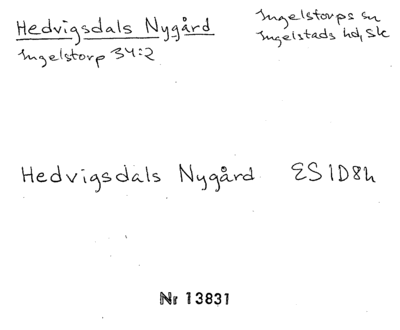 Hedvigsdals Nygård
Ingelstorp 34:2
Ingelstorps sn
Ingelstads hd, Sk
Hedvigsdals Nygård ES 1D8h
Nr 13831